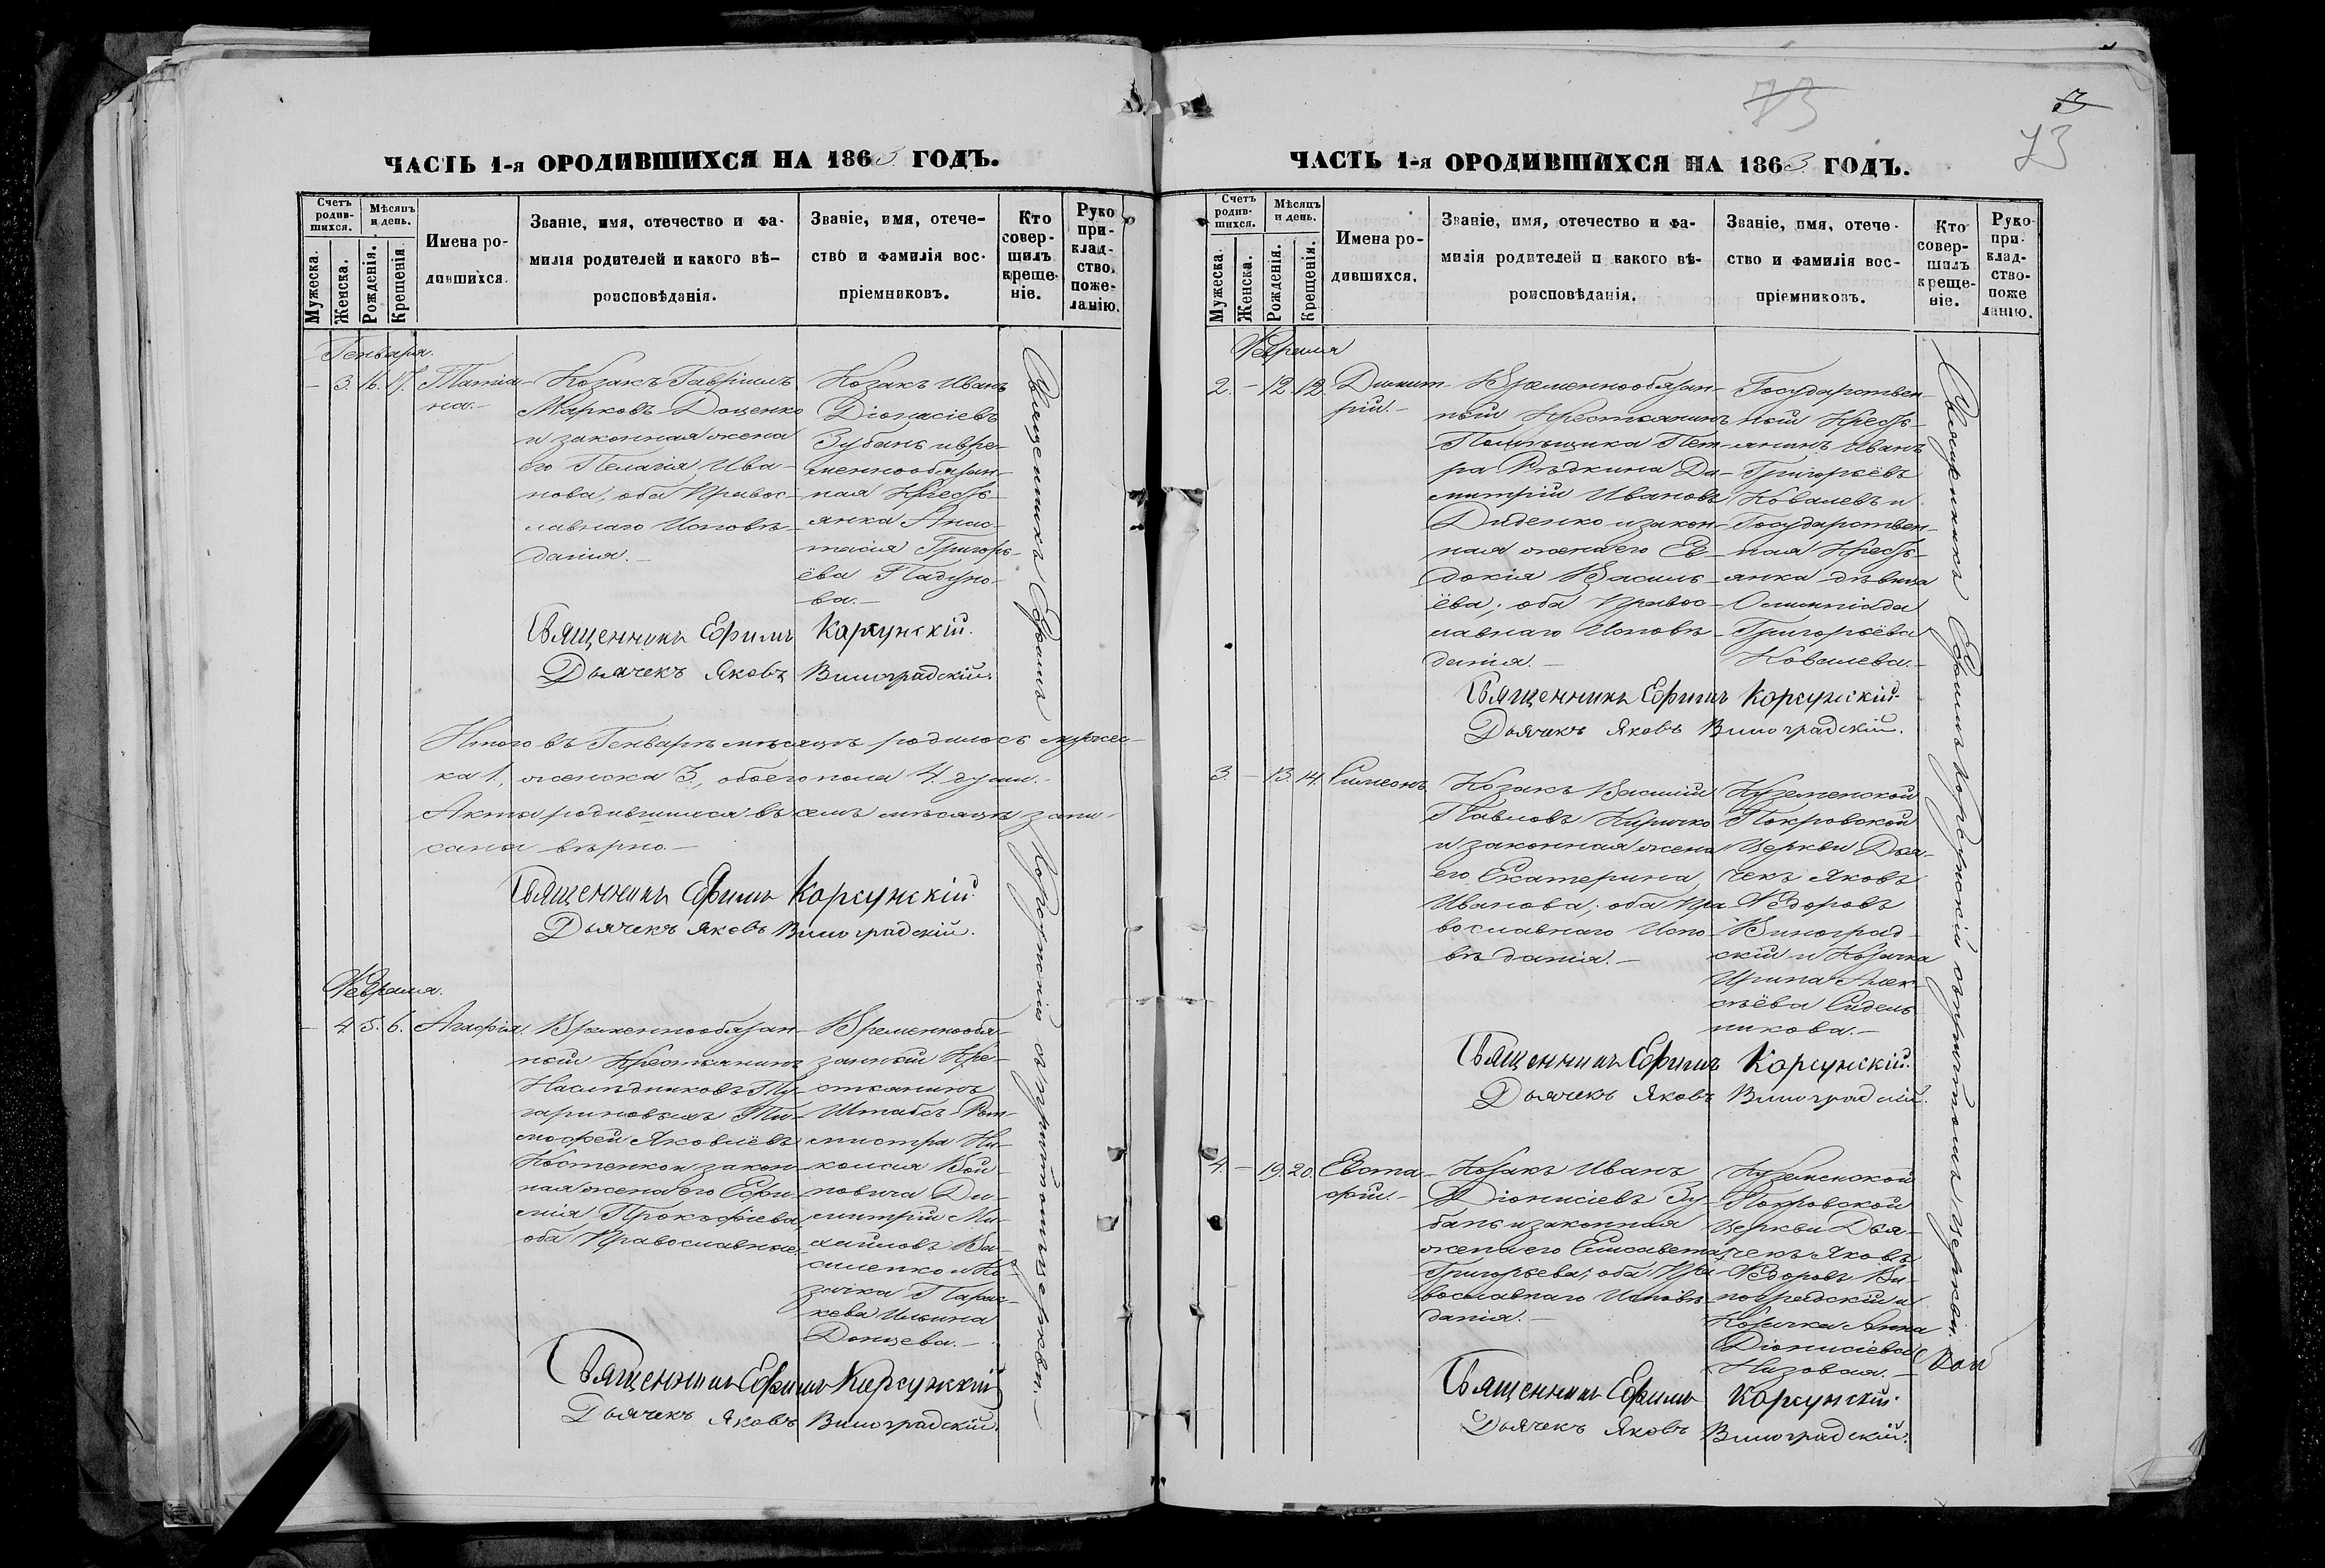 ЧАСТЬ 1-я ОРОДИВШИХСЯ НА 1863 ГОДЪ.
Счетъ родив-шихся.
Мѣсяцъ и день.
Мужеска.
Женска.
Рожденія.
Крещенія
Имена ро-
дившихся.
Званіе, имя, отечество и фа-
милія родителей и какого вѣ-
роисповѣданія.
Званіе, имя, отече-
ство и фамилія вос-
пріемниковъ.
Кто
совер-
шилъ
креще-
ніе.
Руко
при-
клад-
ство.
поже-
ланію.
Генваря.
– 3. 16. 17. Татіа-
на.–
Козакъ Гавріилъ
Марковъ Доценко
и законная жена
его Пелагія Ива-
нова, оба Правос-
лавнаго Исповѣ-
данія.–
Козакъ Иванъ
Діонисіевъ
Зубань и вре-
меннообязан-
ная Кресть-
янка Анас-
тасія Григорь-
ёва Падуно-
ва.–
Священникъ Ефимъ Корсунскій.
Дьячекъ Яковъ Виноградскій.
Итого въ Генварѣ мѣсяцѣ родилось мужес-
ка 1, женска 3, обоего пола 4. души.–
Акты родившихся въ семъ мѣсяцѣ запи-
саны вѣрно.–
Священникъ Ефимъ Корсунскій.
Дьячекъ Яковъ Виноградскій.
Февраля.
– 4. 5. 6. Агафія.
Временнообязан-
ный Крестьянинъ
Наслѣдниковъ
Ти-
мофей Яковлёвъ
Костенко и закон-
ная жена его Ефи-
мія Прокофіева,
оба Православные.
Временнообя-
занный Кре-
стьянинъ
Штабсъ-Рот-
мистра Ни-
колая Вой-
новича Ди-
митрій Ми-
хайловъ Ва-
силенко и Ко-
зачка Парас-
кева Ильина
Донцева.–
Священникъ Ефимъ Корсунскій
Дьячекъ Яковъ Виноградскій.
Священникъ Ефимъ Корсунскій съ причтомъ церкви.–
73
3
73
ЧАСТЬ 1-я ОРОДИВШИХСЯ НА 1863 ГОДЪ.
Счетъ родив-шихся.
Мѣсяцъ и день.
Мужеска.
Женска.
Рожденія.
Крещенія.
Имена ро-
дившихся.
Званіе, имя, отечество и фа-
милія родителей и какого вѣ-
роисповѣданія.
Званіе, имя, отече-
ство и фамилія вос-
пріемниковъ.
Кто
совер-
шилъ
креще-
ніе.
Руко-
при-
клад-
ство-
поже
ланію.
Февраля
2. – 12. 12. Димит-
рій.–
Временнообязан-
ный Крестьянинъ
Помѣщика Пет-
ра Рѣдкина Ди-
митрій Ивановъ
Диденко и закон-
ная жена его Ев-
докія Василь-
ёва; оба Правос-
лавнаго Исповѣ-
данія.–
Государствен-
ный Кресть-
янинъ Иванъ
Григорьёвъ
Ковалевъ и
Государствен-
ная Кресть-
янка дѣвица
Олимпіада
Григорьёва
Ковалева.–
Священникъ Ефимъ Корсунскій.
Дьячекъ Яковъ Виноградскій.
3. – 13. 14. Симеонъ.
Козакъ Василій
Павловъ Киричко
и законная жена
его Екатерина
Иванова; оба Пра-
вославнаго Испо-
вѣданія.–
Куземенской
Покровской
Церкви Дья-
чекъ Яковъ
Федоровъ
Виноград-
скій и Козачка
Ирина Алек-
сѣёва Сидель-
никова.–
Священникъ Ефимъ Корсунскій.
Дьячекъ Яковъ Виноградскій.
4. – 19. 20. Евста-
фій.–
Козакъ Иванъ
Діонисіевъ Зу-
бань и законная
жена его Елисавета
Григорьева; оба Пра-
вославнаго Исповѣ-
данія.–
Куземенской
Покровской
Церкви Дья-
чекъ Яковъ
Федоровъ Ви-
ноградскій и
Козачка Анна
Діонисіева
Низовая.–
Священникъ Ефимъ Корсунскій.
Дьячекъ Яковъ Виноградскій.
Священникъ Ефимъ Корсунскій съ причтомъ церкви.